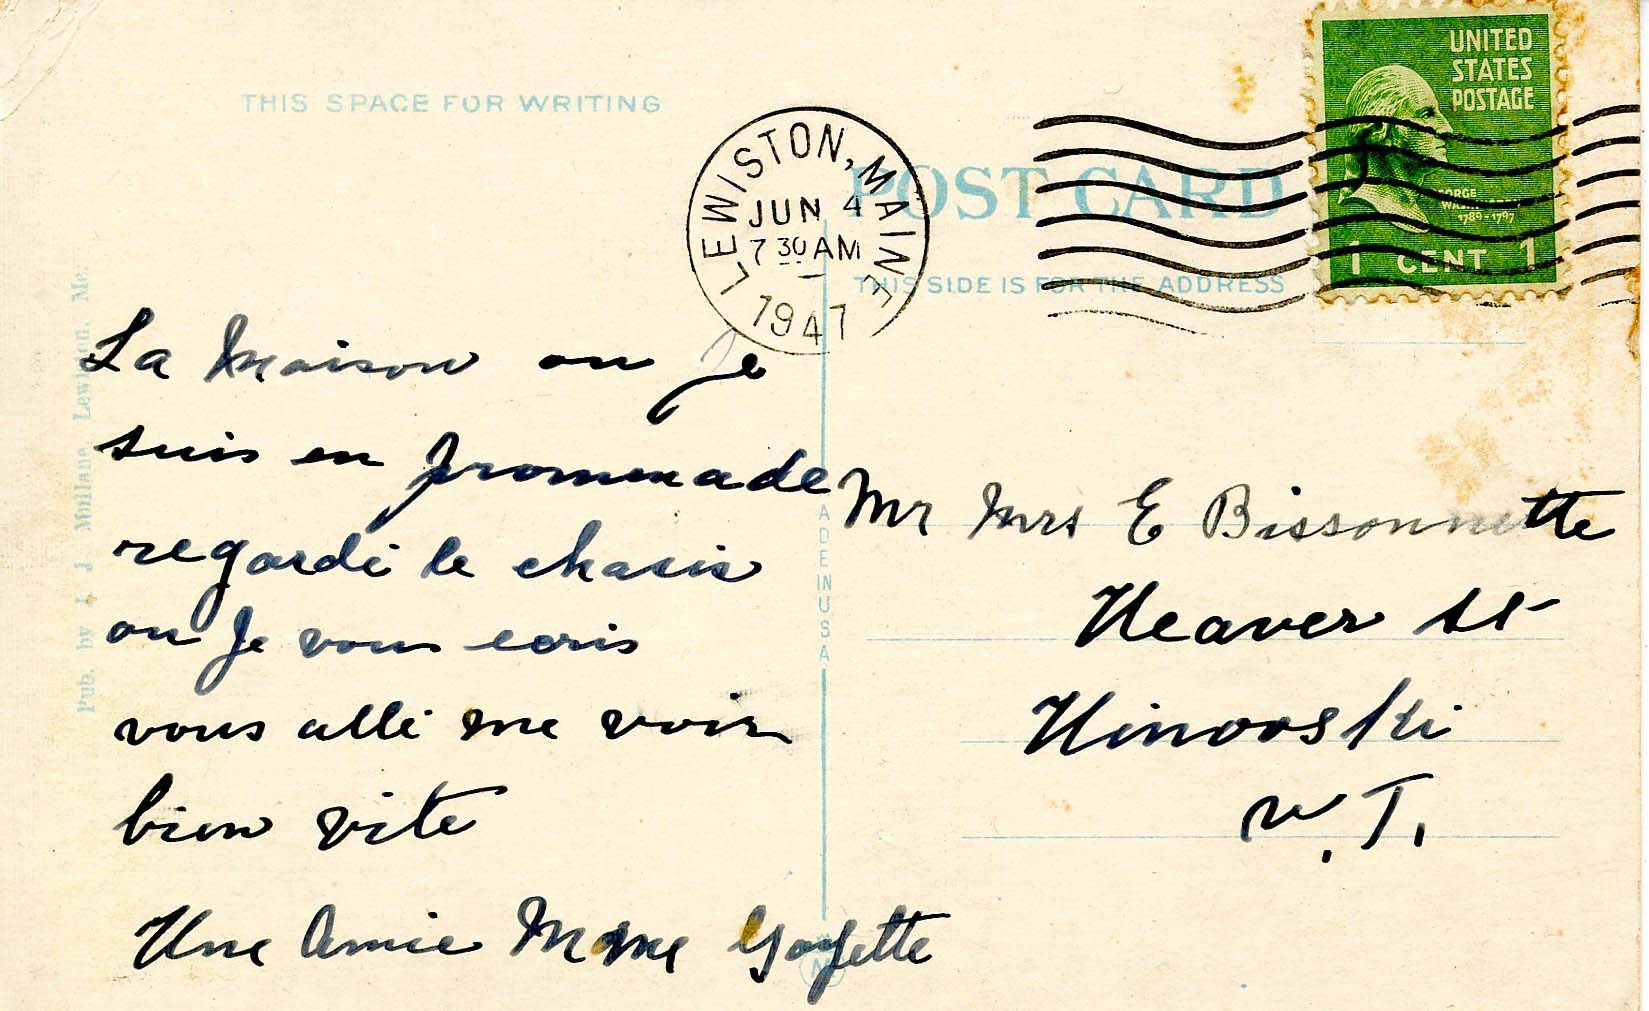 THIS SPACE FOR WRITING
LEWISTON, MAINE
JUN 4
7 30 AM
1947
POST CARD
THIS SIDE IS FOR THE ADDRESS
UNITED
STATES
POSTAGE
GEORGE
WASHINGTON
1789-1797
1 CENT 1
La Maison ou Je
suis en promenade
regardé le chasis
ou Je vous ecris
vous allé me voir
bien vite
Une Amie Mme Goyette
Mr Mrs E Bissonnette
Weaver St
Winooski
V.T.
Pub. by J. J. Mullane, Lewiston, Me.
MADE IN U S A